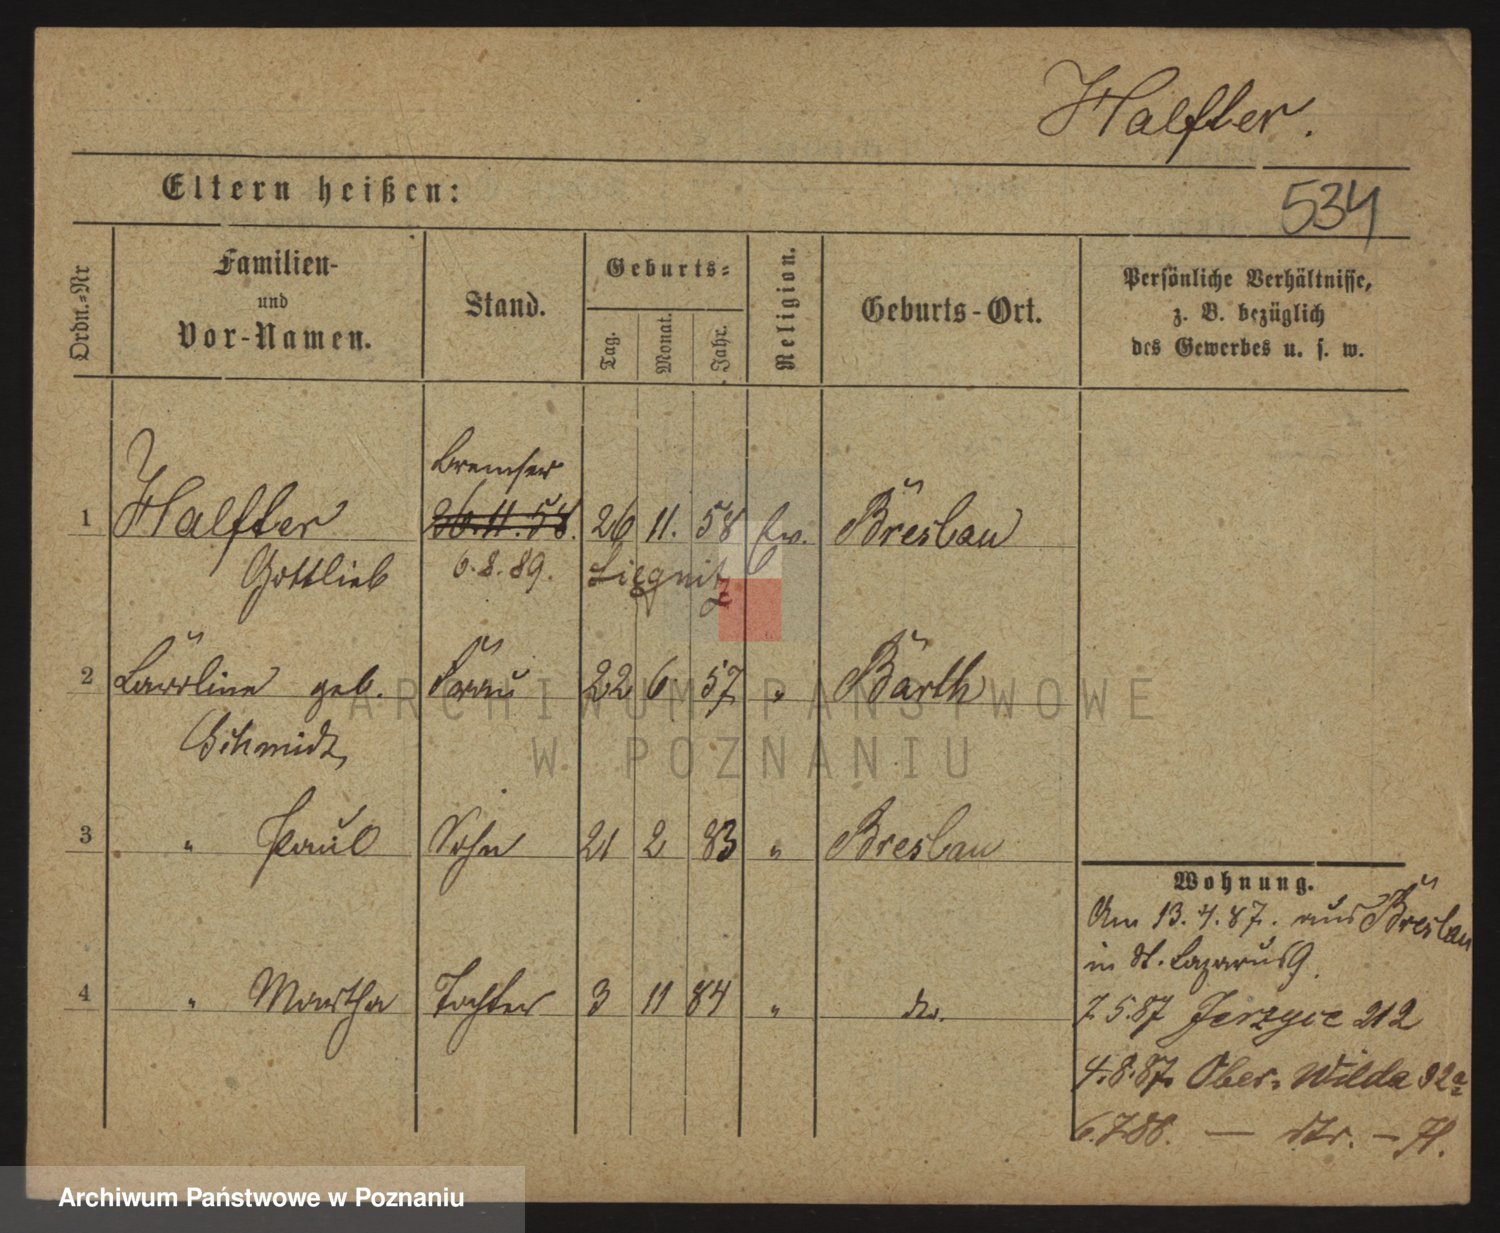 Halfter.
Eltern heißen:
534
Ordn.=Nr
Familien-
und
Vor-Namen.
Stand.
Geburts=
Tag.
Monat.
Jahr.
Religion.
Geburts-Ort.
Persönliche Verhältnisse,
z. B. bezüglich
des Gewerbes u. s. w.
Bremser
1 Halfter 26.11.58. 26 11. 58 Ev. Breslau
Gottlieb 6.8.89. Liegnitz
2 geb. Frau 22 6. 57 " Barth
Schmidt,
3 " Paul Sohn 21 2 83 " Breslau
4 " Martha Tochter 3 11 84 " do.
Wohnung.
Am 13.4.87. aus Breslau
in St. Lazarus 9.
7.5.87 Jerzyce 212
4.8.87. Ober-Wilda 92a
6.7.88. — dto. — 71.
ARCHIWUM PAŃSTWOWE
W POZNANIU
Archiwum Państwowe w Poznaniu